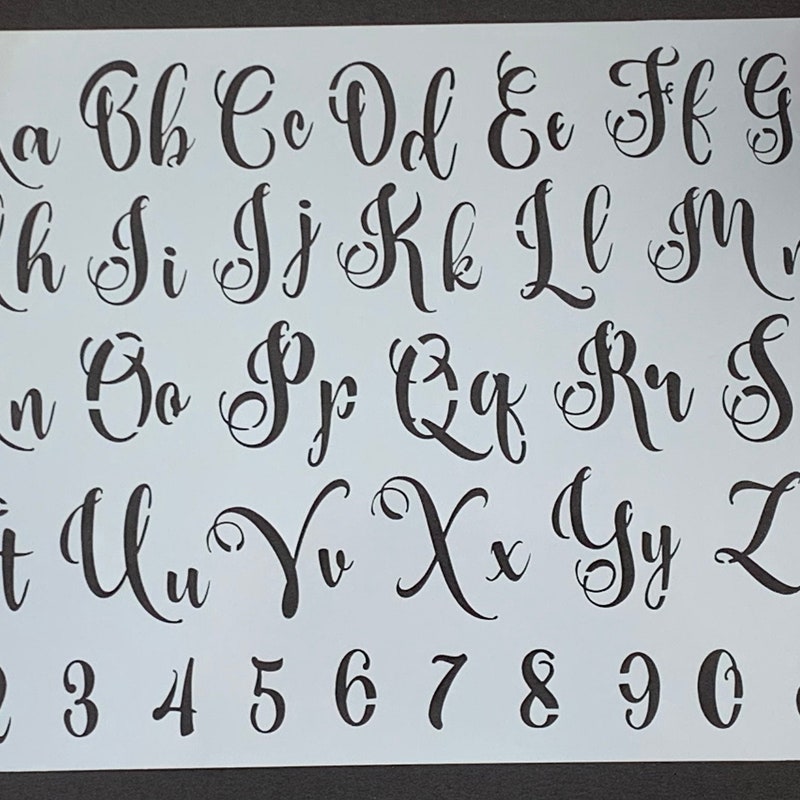 a Bb Cc Dd Ee Ff G
h Ii Jj Kk Ll M
n Oo Pp Qq Rr S
t Uu Vv Xx Yy Z
3 4 5 6 7 8 9 0